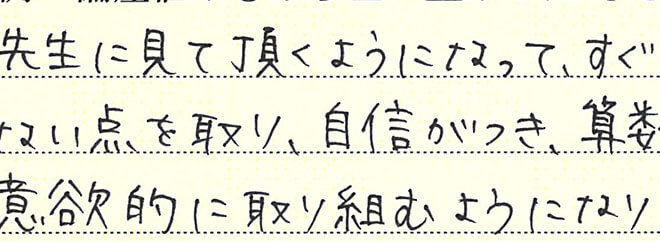 先生に見て頂くようになって、すぐ
ない点を取り、自信がつき、算数
意欲的に取り組むようになり